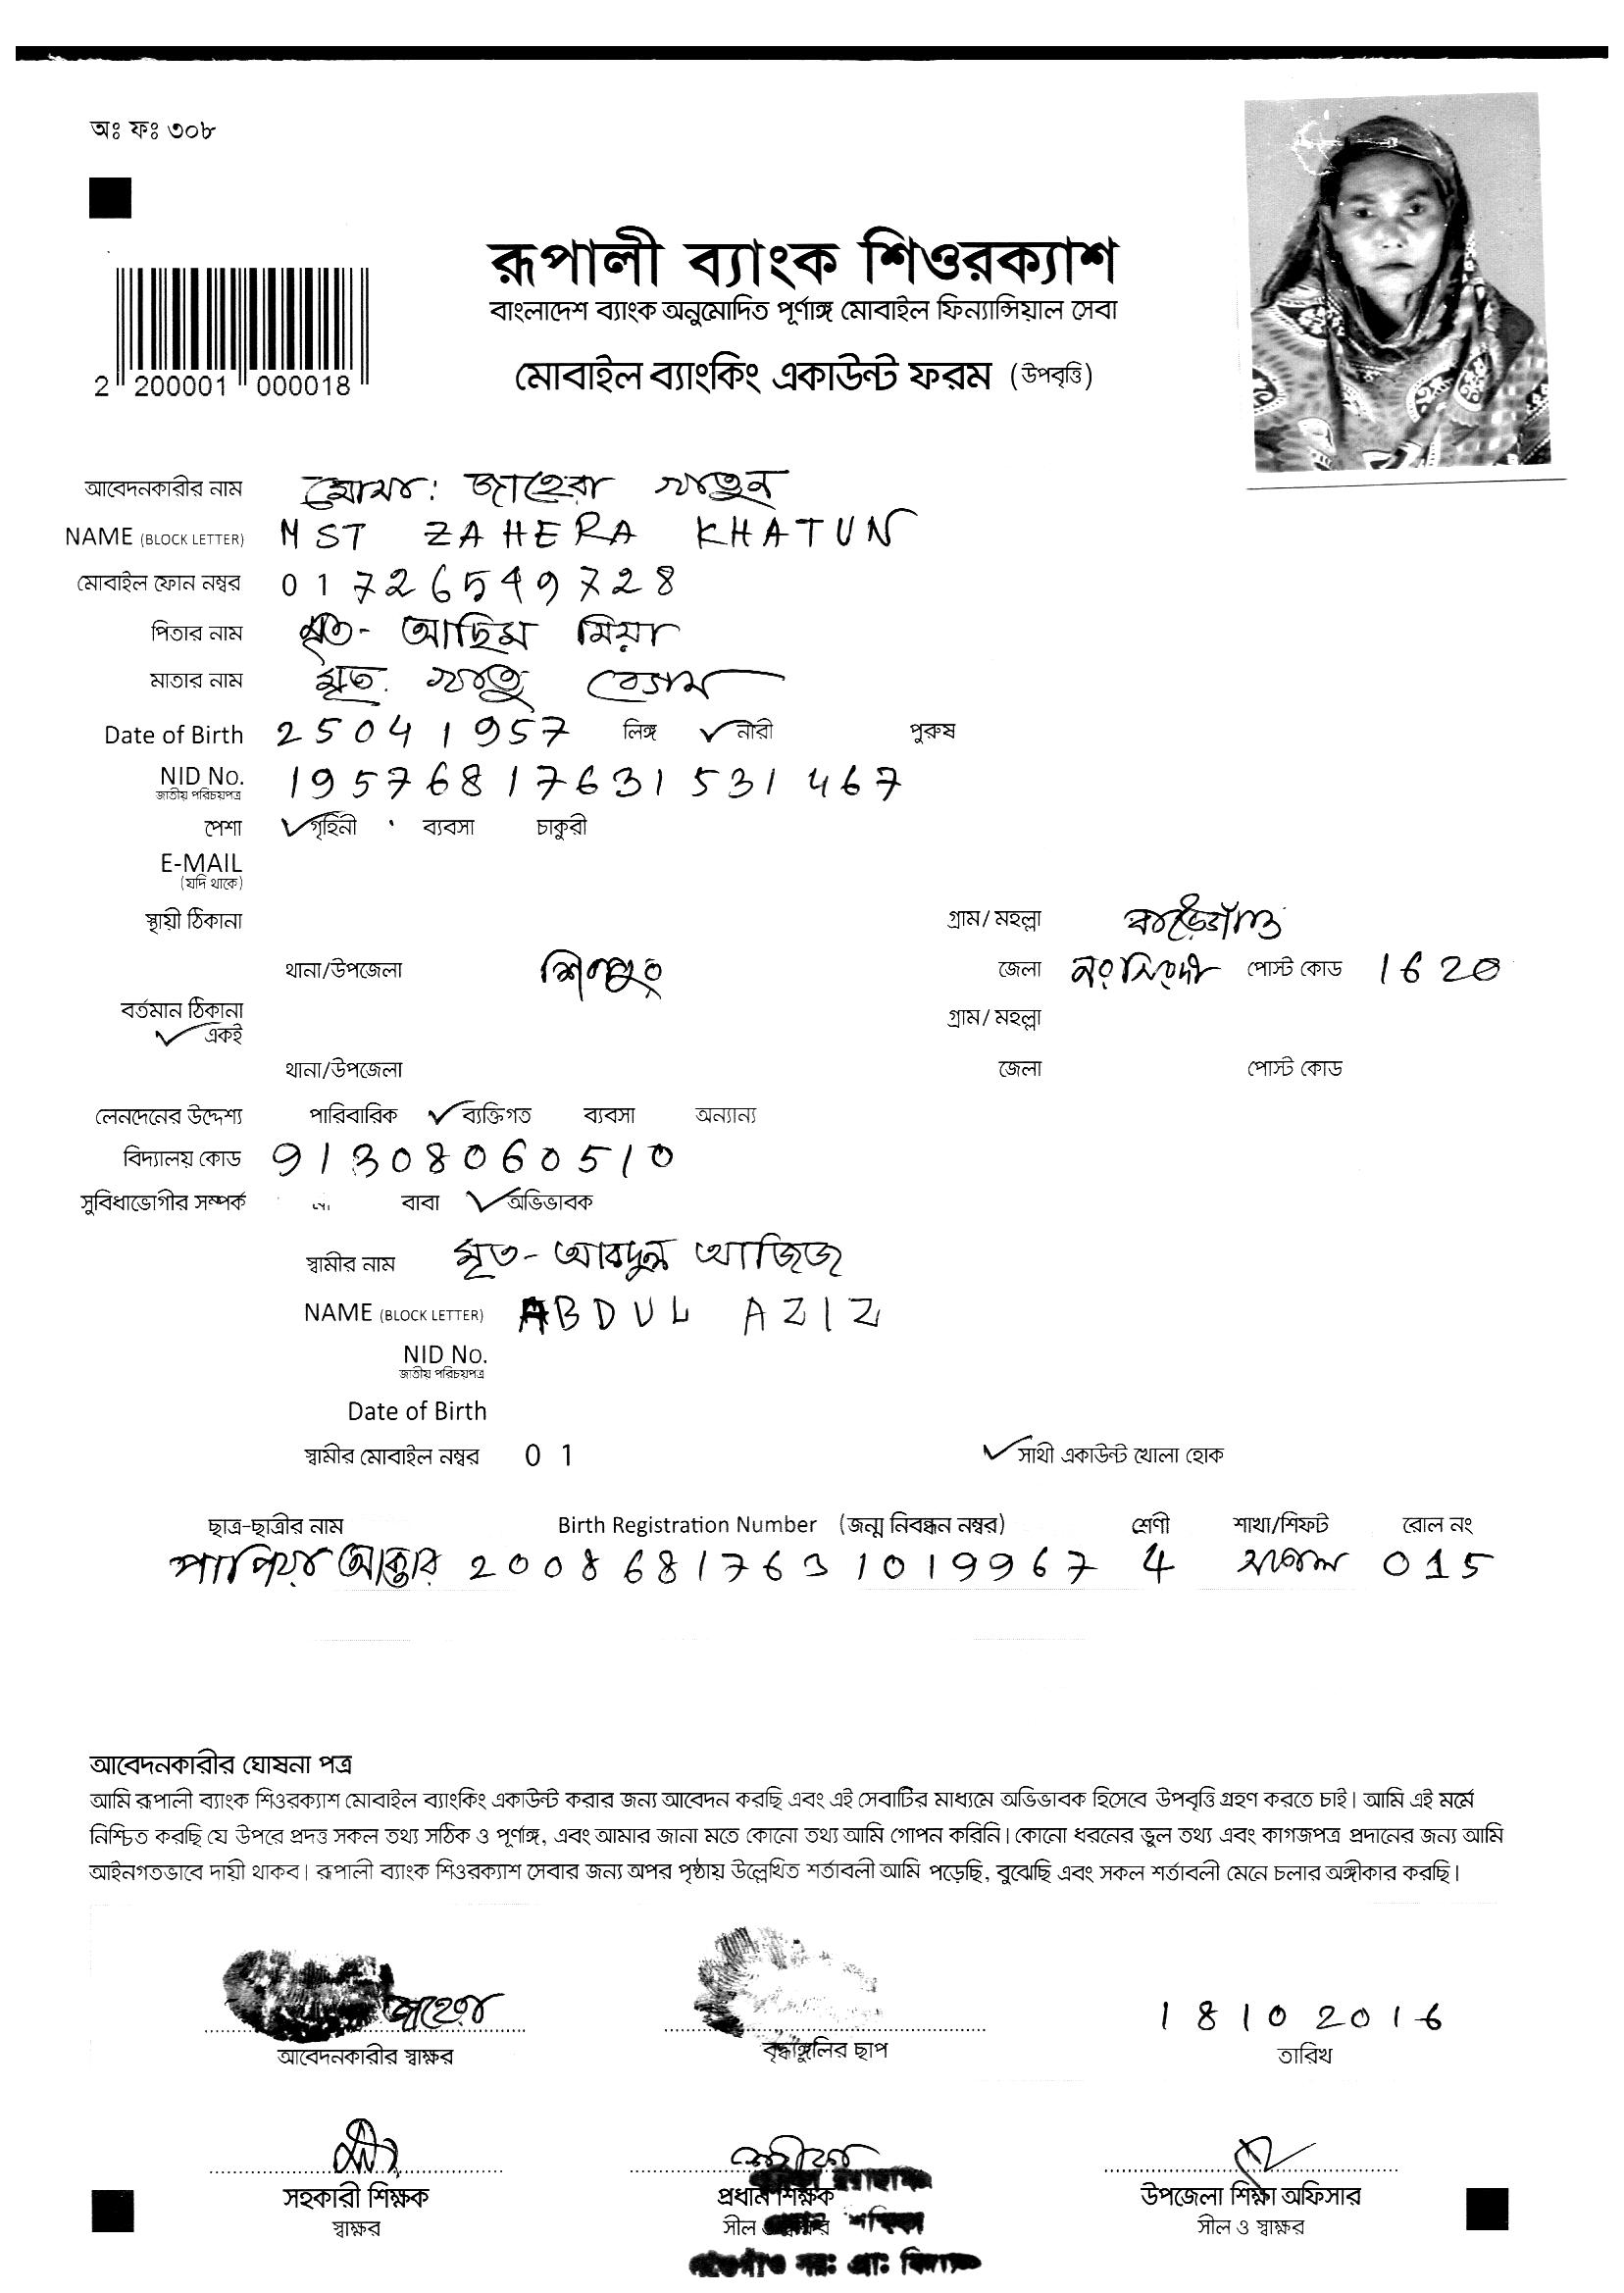 অঃ ফঃ ৩০৮
রূপালী ব্যাংক শিওরক্যাশ
বাংলাদেশ ব্যাংক অনুমোদিত পূর্ণাঙ্গ মোবাইল ফিন্যান্সিয়াল সেবা
মোবাইল ব্যাংকিং একাউন্ট ফরম (উপবৃত্তি)
2 200001 000018
আবেদনকারীর নাম মোসাঃ জাহেরা খাতুন
NAME (BLOCK LETTER) MST ZAHERA KHATUN
মোবাইল ফোন নম্বর 01726549728
পিতার নাম মৃত- আছিম মিয়া
মাতার নাম মৃত. খাতু বেগম
Date of Birth 25041957 লিঙ্গ ✓ নারী পুরুষ
NID No. 19576817631531467
জাতীয় পরিচয়পত্র
পেশা ✓ গৃহিনী ব্যবসা চাকুরী
E-MAIL
(যদি থাকে)
স্থায়ী ঠিকানা গ্রাম/ মহল্লা
থানা/উপজেলা শিবপুর জেলা নরসিংদী পোস্ট কোড 1620
বর্তমান ঠিকানা গ্রাম/ মহল্লা
✓ একই
থানা/উপজেলা জেলা পোস্ট কোড
লেনদেনের উদ্দেশ্য পারিবারিক ✓ ব্যক্তিগত ব্যবসা অন্যান্য
বিদ্যালয় কোড 91308060510
সুবিধাভোগীর সম্পর্ক বাবা ✓ অভিভাবক
স্বামীর নাম মৃত- আবদুল আজিজ
NAME (BLOCK LETTER) ABDUL AZIZ
NID No.
জাতীয় পরিচয়পত্র
Date of Birth
স্বামীর মোবাইল নম্বর 01 ✓ সাথী একাউন্ট খোলা হোক
ছাত্র-ছাত্রীর নাম Birth Registration Number (জন্ম নিবন্ধন নম্বর) শ্রেণী শাখা/শিফট রোল নং
পাপিয়া আক্তার 20086817631019967 4 015
আবেদনকারীর ঘোষনা পত্র
আমি রূপালী ব্যাংক শিওরক্যাশ মোবাইল ব্যাংকিং একাউন্ট করার জন্য আবেদন করছি এবং এই সেবাটির মাধ্যমে অভিভাবক হিসেবে উপবৃত্তি গ্রহণ করতে চাই। আমি এই মর্মে
নিশ্চিত করছি যে উপরে প্রদত্ত সকল তথ্য সঠিক ও পূর্ণাঙ্গ, এবং আমার জানা মতে কোনো তথ্য আমি গোপন করিনি। কোনো ধরনের ভুল তথ্য এবং কাগজপত্র প্রদানের জন্য আমি
আইনগতভাবে দায়ী থাকব। রূপালী ব্যাংক শিওরক্যাশ সেবার জন্য অপর পৃষ্ঠায় উল্লেখিত শর্তাবলী আমি পড়েছি, বুঝেছি এবং সকল শর্তাবলী মেনে চলার অঙ্গীকার করছি।
জাহেরা 18102016
আবেদনকারীর স্বাক্ষর বৃদ্ধাঙ্গুলির ছাপ তারিখ
সহকারী শিক্ষক প্রধান শিক্ষক উপজেলা শিক্ষা অফিসার
স্বাক্ষর সীল ও স্বাক্ষর সীল ও স্বাক্ষর